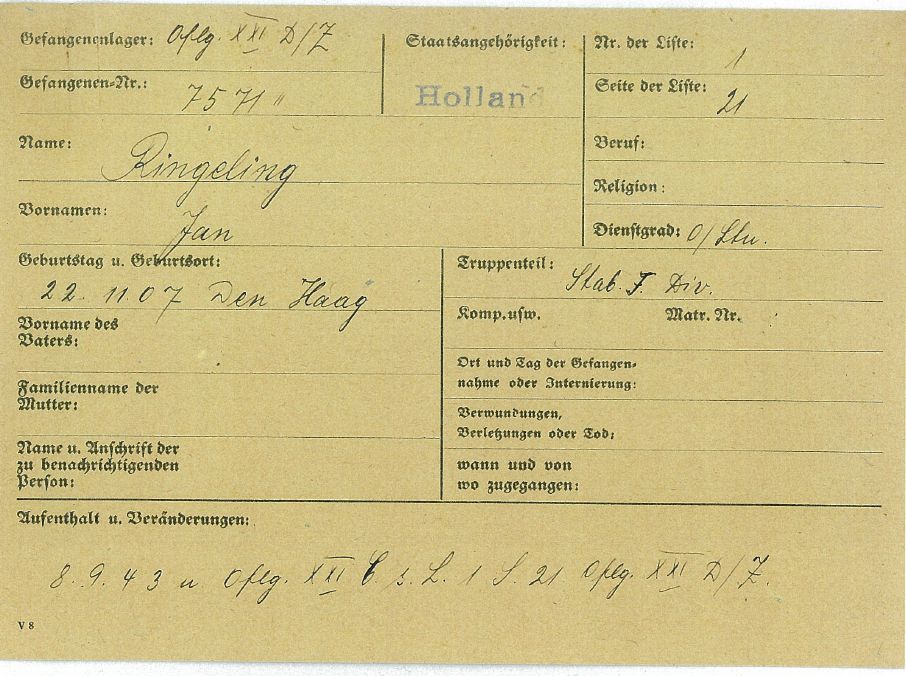 Gefangenenlager: Oflg. XXI D/Z
Gefangenen-Nr.: 7571 "
Staatsangehörigkeit:
Holland
Nr. der Liste: 1
Seite der Liste: 21
Name: Ringeling
Beruf:
Religion:
Vornamen: Jan
Dienstgrad: O/Ltn.
Geburtstag u. Geburtsort:
22. 11. 07 Den Haag
Truppenteil: Stab. I. Div.
Komp. usw. Matr. Nr.
Vorname des
Vaters:
Ort und Tag der Gefangen-
nahme oder Internierung:
Familienname der
Mutter:
Verwundungen,
Verletzungen oder Tod:
Name u. Anschrift der
zu benachrichtigenden
Person:
wann und von
wo zugegangen:
Aufenthalt u. Veränderungen:
8. 9. 43 n Oflg. XXI C s. L. 1 S. 21 Oflg. XXI D/Z.
V 8